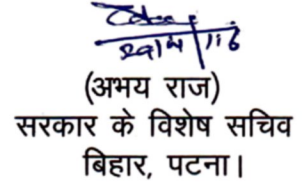 (अभय राज)
सरकार के विशेष सचिव
बिहार, पटना।